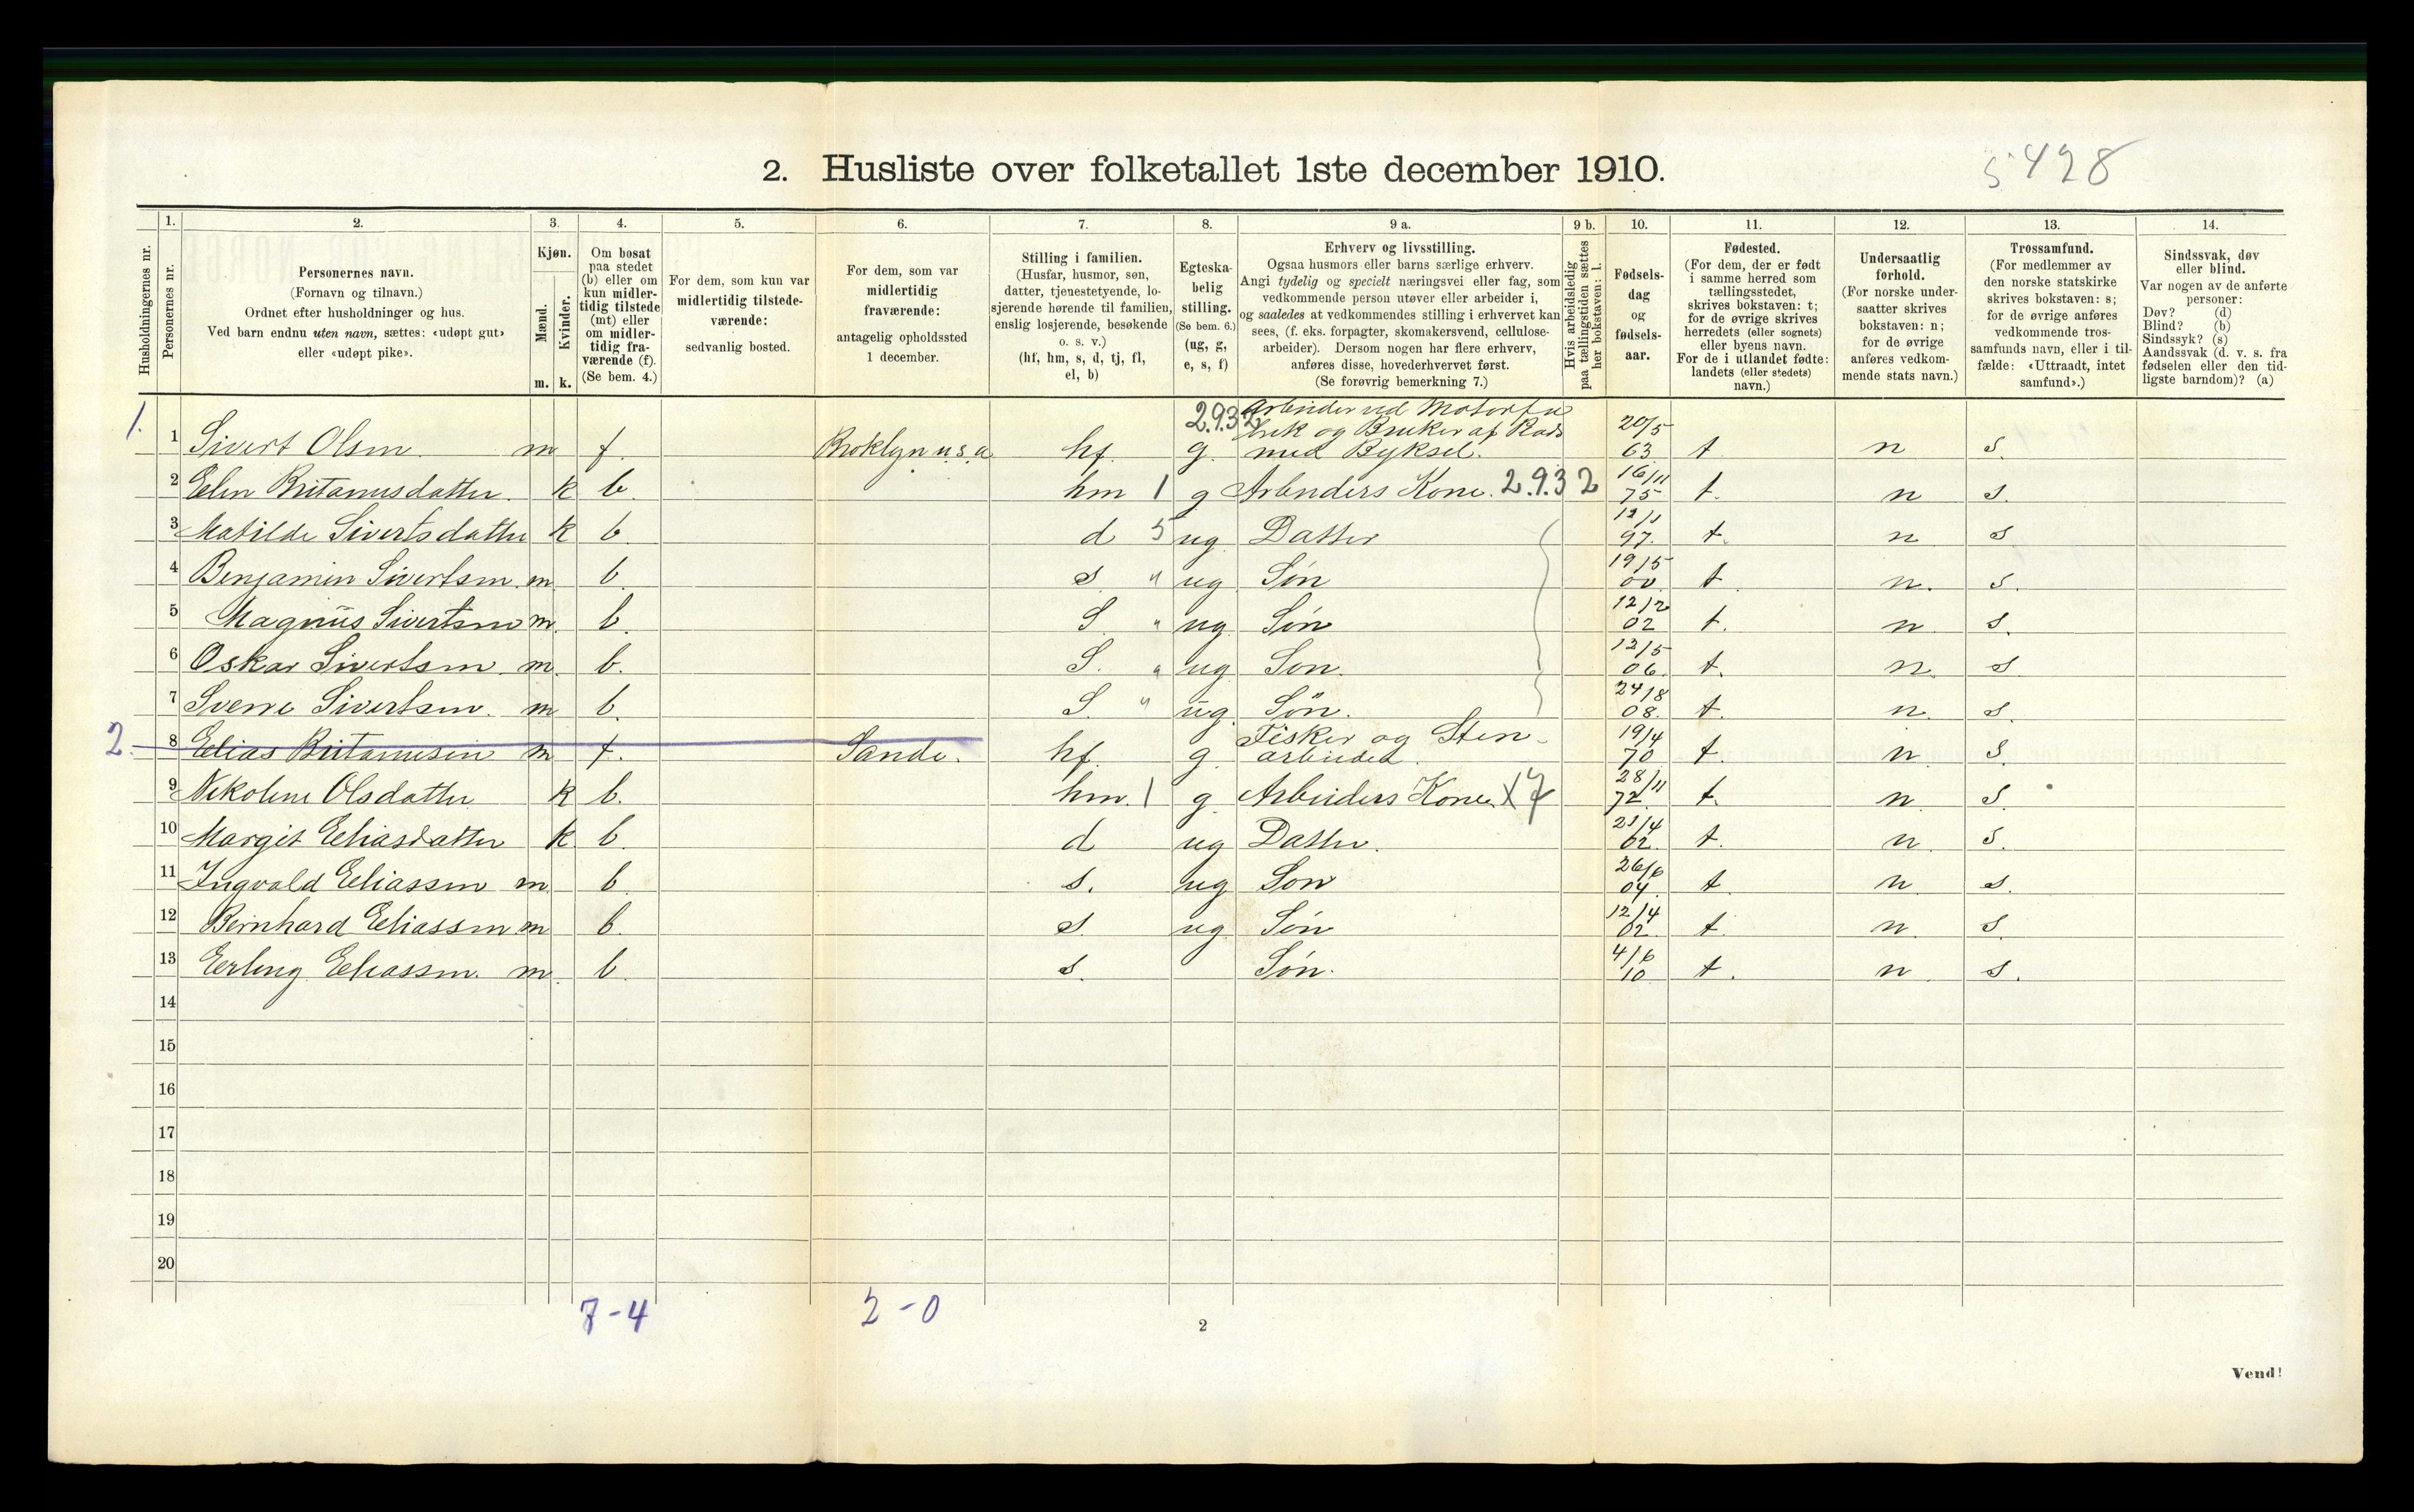 2. Husliste over folketallet 1ste december 1910.
5428
Husholdningernes nr.
1.
Personernes nr.
2.
Personernes navn.
(Fornavn og tilnavn.)
Ordnet efter husholdninger og hus.
Ved barn endnu uten navn, sættes: «udøpt gut»
eller «udøpt pike».
3.
Kjøn.
Mænd.
Kvinder.
m. k.
4.
Om bosat
paa stedet
(b) eller om
kun midler-
tidig tilstede
(mt) eller
om midler-
tidig fra-
værende (f).
(Se bem. 4.)
5.
For dem, som kun var
midlertidig tilstede-
værende:
sedvanlig bosted.
6.
For dem, som var
midlertidig
fraværende:
antagelig opholdssted
1 december.
7.
Stilling i familien.
(Husfar, husmor, søn,
datter, tjenestetyende, lo-
sjerende hørende til familien,
enslig losjerende, besøkende
o. s. v.)
(hf, hm, s, d, tj, fl,
el, b)
8.
Egteska-
belig
stilling.
(Se bem. 6.)
(ug, g,
e, s, f)
9 a.
Erhverv og livsstilling.
Ogsaa husmors eller barns særlige erhverv.
Angi tydelig og specielt næringsvei eller fag, som
vedkommende person utøver eller arbeider i,
og saaledes at vedkommendes stilling i erhvervet kan
sees, (f. eks. forpagter, skomakersvend, cellulose-
arbeider). Dersom nogen har flere erhverv,
anføres disse, hovederhvervet først.
(Se forøvrig bemerkning 7.)
9 b.
Hvis arbeidsledig
paa tællingstiden sættes
her bokstaven: l.
10.
Fødsels-
dag
og
fødsels-
aar.
11.
Fødested.
(For dem, der er født
i samme herred som
tællingsstedet,
skrives bokstaven: t;
for de øvrige skrives
herredets (eller sognets)
eller byens navn.
For de i utlandet fødte:
landets (eller stedets)
navn.)
12.
Undersaatlig
forhold.
(For norske under-
saatter skrives
bokstaven: n;
for de øvrige
anføres vedkom-
mende stats navn.)
13.
Trossamfund.
(For medlemmer av
den norske statskirke
skrives bokstaven: s;
for de øvrige anføres
vedkommende tros-
samfunds navn, eller i til-
fælde: «Uttraadt, intet
samfund».)
14.
Sindssvak, døv
eller blind.
Var nogen av de anførte
personer:
Døv? (d)
Blind? (b)
Sindssyk? (s)
Aandssvak (d. v. s. fra
fødselen eller den tid-
ligste barndom)? (a)
1. 1 Sivert Olsen m f. Broklyn u.s.a hf. g. 2.9.32 Arbeider ved Motorfa
brik og Bruker af Rads
med Byksel. 20/5 63 t n s.
2 Elen Britanusdatter. k b. hm 1 g Arbeiders Kone. 2.9.32 16/11 75 t. n s.
3 Matilde Sivertsdatter k b. d 5 ug Datter 12/1 97. t. n s
4 Benjamin Sivertsen. m. b. s. " ug Søn 19/5 00 t n. s.
5 Magnus Sivertsen m. b. S. " ug Søn 12/2 02 t. n s.
6 Oskar Sivertsen m. b. S. " ug Søn. 12/5 06. t. n. s
7 Sverre Sivertsen. m b. S. " ug. Søn. 24/8 08. t. n. s.
2. 8 Elias Britanusen m f. Sande. hf. g. Fisker og Sten-
arbeider. 19/4 70 t. n. s.
9 Nikoline Olsdatter k b. hm. 1 g Arbeiders Kone. 28/11 72. t. n. s.
10 Margit Eliasdatter k b. d ug Datter. 21/4 02. t. n. s.
11 Ingvald Eliassen m. b. s. ug Søn 26/6 04. t. n. s.
12 Bernhard Eliassen m b. s. ug. Søn 12/4 02. t. n. s.
13 Erling Eliassen. m. b. s. Søn. 4/6 10 t. n s.
14
15
16
17
18
19
20
7-4
2-0
2
Vend!